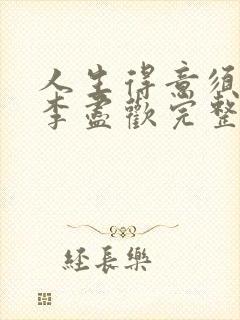 人生得意须
李盡歡完整
经長樂